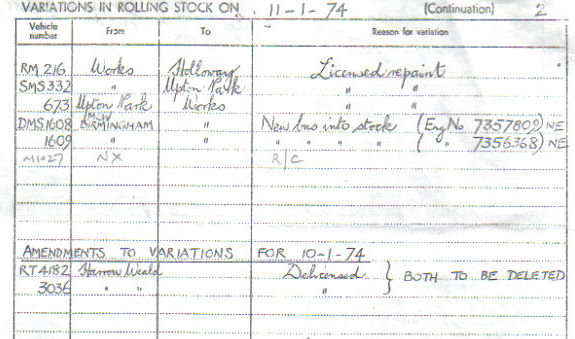 VARIATIONS IN ROLLING STOCK ON 11-1-74 (Continuation) 2
Vehicle number From To Reason for variation
RM 216 Works Holloway Licensed repaint
SMS 332 " Upton Park " "
673 Upton Park Works " "
DMS1608 BIRMINGHAM " New bus into stock (Eng No 7357809) NE
1609 " " " " " " ( " 7356368) NE
M1027 NX R/C
AMENDMENTS TO VARIATIONS FOR 10-1-74
RT4182 Harrow Weald Delicensed } BOTH TO BE DELETED
3036 " " "